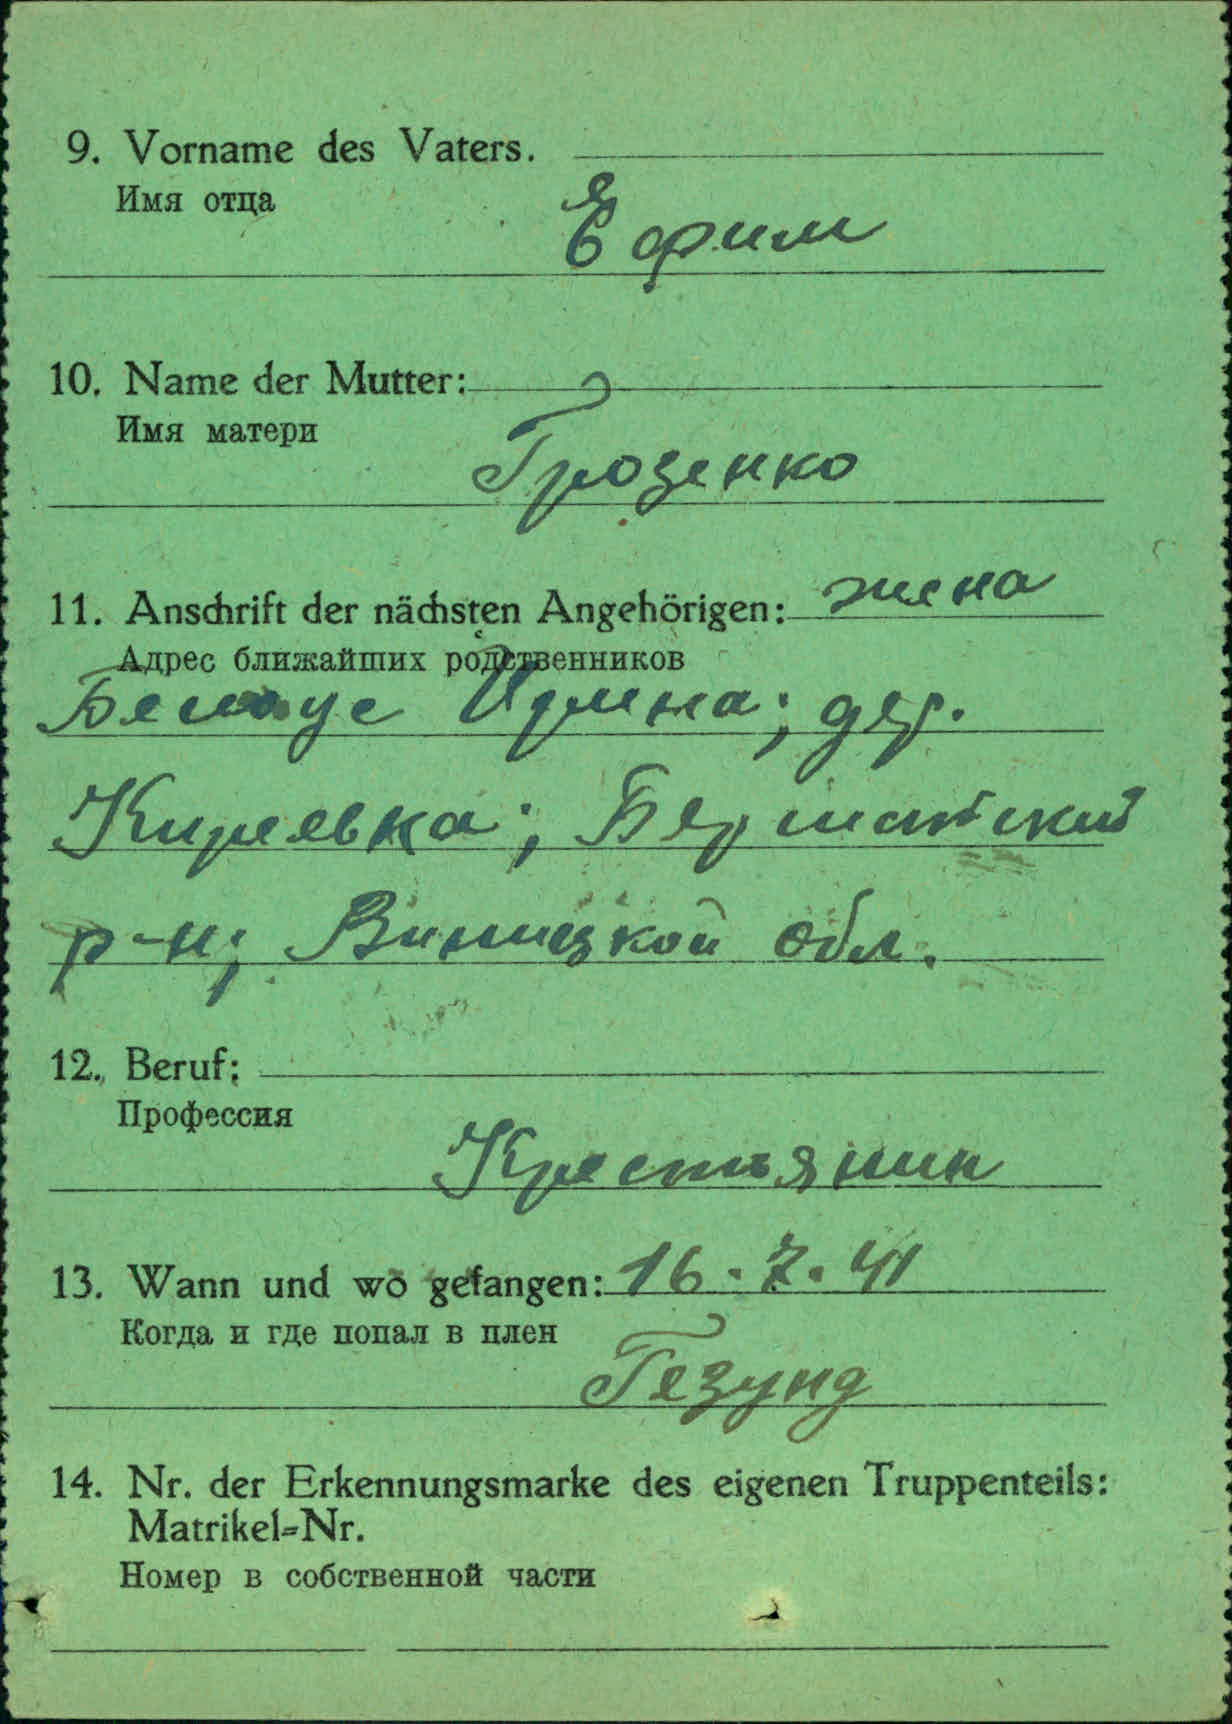 9. Vorname des Vaters.
Имя отца
Ефим
10. Name der Mutter:
Имя матери
Грозенко
11. Anschrift der nächsten Angehörigen: жена
Адрес ближайших родственников
Белоус Ирина; дер.
Киреевка; Бершатский
р-н; Виницкой обл.
12. Beruf:
Профессия
Крестьянин
13. Wann und wo gefangen: 16.7.41
Когда и где попал в плен
Гезунд
14. Nr. der Erkennungsmarke des eigenen Truppenteils:
Matrikel=Nr.
Номер в собственной части